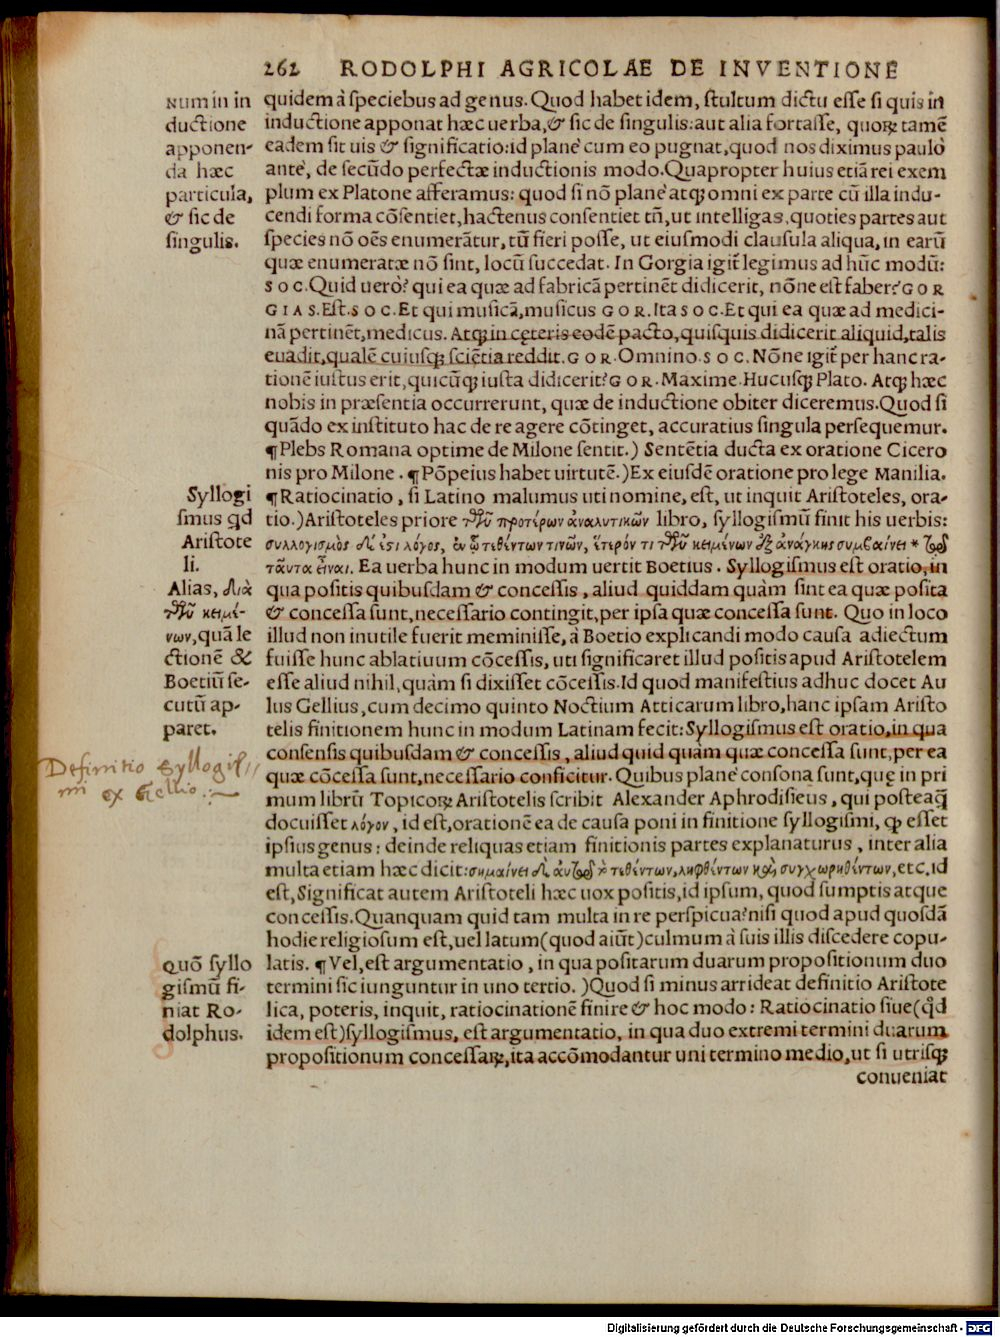 262 RODOLPHI AGRICOLAE DE INVENTIONE
Num in in
ductione
apponen-
da hæc
particula,
& sic de
singulis.
quidem à speciebus ad genus. Quod habet idem, stultum dictu esse si quis in
inductione apponat hæc uerba, & sic de singulis: aut alia fortasse, quoꝝ tamē
eadem sit uis & significatio: id planè cum eo pugnat, quod nos diximus paulò
antè, de secūdo perfectæ inductionis modo. Quapropter huius etiā rei exem
plum ex Platone afferamus: quod si nō planè atqꝫ omni ex parte cū illa indu-
cendi forma cōsentiet, hactenus consentiet tñ, ut intelligas, quoties partes aut
species nō oēs enumerātur, tū fieri posse, ut eiusmodi clausula aliqua, in earū
quæ enumeratæ nō sint, locū succedat. In Gorgia igit̃ legimus ad hūc modū:
SOC. Quid uerò? qui ea quæ ad fabricā pertinēt didicerit, nōne est faber? GOR
GIAS. Est. SOC. Et qui musicā, musicus GOR. Ita SOC. Et qui ea quæ ad medici-
nā pertinēt, medicus. Atqꝫ in cęteris eodē pacto, quisquis didicerit aliquid, talis
euadit, qualē cuiusqꝫ sciētia reddit. GOR. Omnino. SOC. Nōne igit̃ per hanc ra-
tionē iustus erit, quicūqꝫ iusta didicerit? GOR. Maxime. Hucusqꝫ Plato. Atqꝫ hæc
nobis in præsentia occurrerunt, quæ de inductione obiter diceremus. Quod si
quādo ex instituto hac de re agere cōtinget, accuratius singula persequemur.
¶ Plebs Romana optime de Milone sentit.) Sentētia ducta ex oratione Cicero
nis pro Milone. ¶ Pōpeius habet uirtutē.) Ex eiusdē oratione pro lege Manilia.
Syllogi
smus qd
Aristote
li.
Alias, διὰ
τῶν κειμέ-
νων, quā le
ctionē &
Boetiū se-
cutū ap-
paret.
¶ Ratiocinatio, si Latino malumus uti nomine, est, ut inquit Aristoteles, ora-
tio.) Aristoteles priore τῶν προτέρων ἀναλυτικῶν libro, syllogismū finit his uerbis:
συλλογισμὸς δέ ἐστι λόγος, ἐν ᾧ τεθέντων τινῶν, ἕτερόν τι τῶν κειμένων ἐξ ἀνάγκης συμβαίνει * τῷ
ταῦτα εἶναι. Ea uerba hunc in modum uertit Boetius. Syllogismus est oratio, in
qua positis quibusdam & concessis, aliud quiddam quàm sint ea quæ posita
& concessa sunt, necessario contingit, per ipsa quæ concessa sunt. Quo in loco
illud non inutile fuerit meminisse, à Boetio explicandi modo causa adiectum
fuisse hunc ablatiuum cōcessis, uti significaret illud positis apud Aristotelem
esse aliud nihil, quàm si dixisset cōcessis. Id quod manifestius adhuc docet Au
lus Gellius, cum decimo quinto Noctium Atticarum libro, hanc ipsam Aristo
telis finitionem hunc in modum Latinam fecit: Syllogismus est oratio, in qua
consensis quibusdam & concessis, aliud quid quàm quæ concessa sunt, per ea
quæ cōcessa sunt, necessario conficitur. Quibus planè consona sunt, quę in pri
mum librū Topicoꝝ Aristotelis scribit Alexander Aphrodisieus, qui posteaq̃
docuisset λόγον, id est, orationē ea de causa poni in finitione syllogismi, ꝙ esset
ipsius genus: deinde reliquas etiam finitionis partes explanaturus, inter alia
multa etiam hæc dicit: σημαίνει δ' αὐτῷ τὸ τεθέντων, ληφθέντων καὶ συγχωρηθέντων, etc. id
est, Significat autem Aristoteli hæc uox positis, id ipsum, quod sumptis atque
concessis. Quanquam quid tam multa in re perspicua? nisi quod apud quosdā
hodie religiosum est, uel latum (quod aiūt) culmum à suis illis discedere copu-
Definitio Syllogis//
mi ex Gellio.
quō syllo
gismū fi-
niat Ro-
dolphus.
latis. ¶ Vel, est argumentatio, in qua positarum duarum propositionum duo
termini sic iunguntur in uno tertio.) Quod si minus arrideat definitio Aristote
lica, poteris, inquit, ratiocinationē finire & hoc modo: Ratiocinatio siue (qd̃
idem est) syllogismus, est argumentatio, in qua duo extremi termini duarum
propositionum concessaꝝ, ita accōmodantur uni termino medio, ut si utrisqꝫ
conueniat
Digitalisierung gefördert durch die Deutsche Forschungsgemeinschaft - DFG